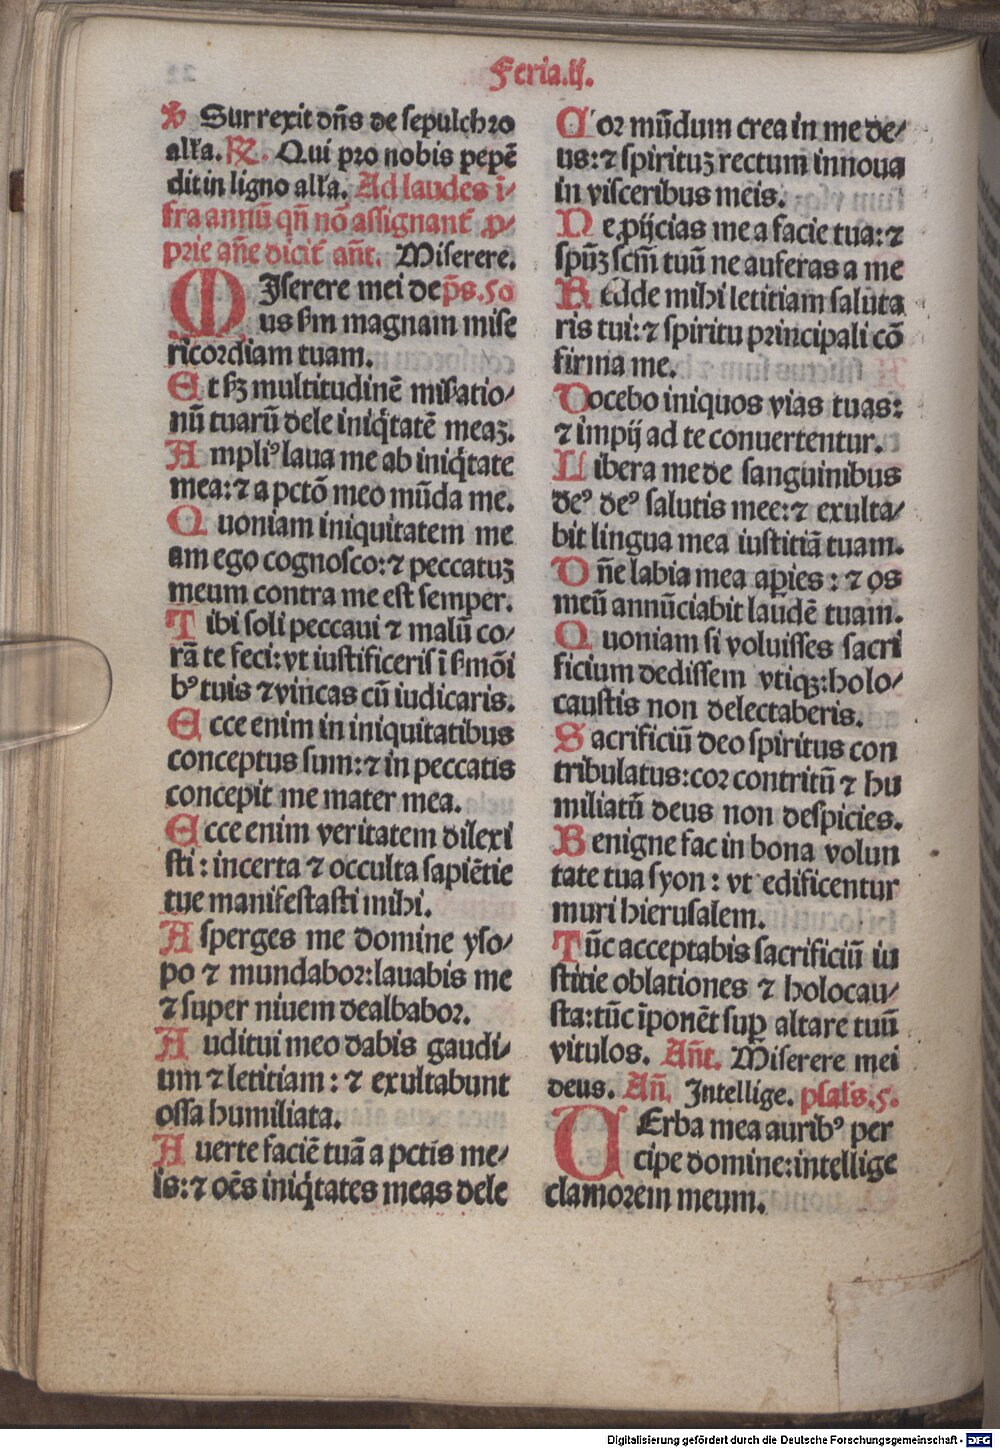 Feria.ij.
℣ Surrexit dñs de sepulchro
alła. ℟. Qui pro nobis pepē
dit in ligno alła. Ad laudes ī⸗
fra annū qñ nō assignant̃ ꝓ⸗
prie añe dicit̃ añt. Miserere.
MIserere mei de p̄s.50
us ẜm magnam mise
ricordiam tuam.
Et ẜꝫ multitudinē miẜatio⸗
nū tuarū dele iniq̇tatē meaꝫ.
Ampliꝰ laua me ab iniq̇tate
mea: ⁊ a pctō meo mūda me.
Quoniam iniquitatem me
am ego cognosco: ⁊ peccatuꝫ
meum contra me est semper.
Tibi soli peccaui ⁊ malū co⸗
rā te feci: vt iustificeris ī ẜmōi
bꝰ tuis ⁊ vincas cū iudicaris.
Ecce enim in iniquitatibus
conceptus sum: ⁊ in peccatis
concepit me mater mea.
Ecce enim veritatem dilexi
sti: incerta ⁊ occulta sapiētie
tue manifestasti mihi.
Asperges me domine yso⸗
po ⁊ mundabor: lauabis me
⁊ super niuem dealbabor.
Auditui meo dabis gaudi⸗
um ⁊ letitiam: ⁊ exultabunt
ossa humiliata.
Auerte faciē tuā a pctis me⸗
is: ⁊ oēs iniq̇tates meas dele
Cor mūdum crea in me de⸗
us: ⁊ spirituꝫ rectum innoua
in visceribus meis.
Ne ꝓijcias me a facie tua: ⁊
spūꝫ scm̄ tuū ne auferas a me
Redde mihi letitiam saluta
ris tui: ⁊ spiritu principali cō
firma me.
Docebo iniquos vias tuas:
⁊ impij ad te conuertentur.
Libera me de sanguinibus
deꝰ deꝰ salutis mee: ⁊ exulta⸗
bit lingua mea iustitiā tuam.
Dñe labia mea aꝑies: ⁊ os
meū annūciabit laudē tuam.
Quoniam si voluisses sacri
ficium dedissem vtiqꝫ: holo⸗
caustis non delectaberis.
Sacrificiū deo spiritus con
tribulatus: cor contritū ⁊ hu
miliatū deus non despicies.
Benigne fac in bona volun
tate tua syon: vt edificentur
muri hierusalem.
Tūc acceptabis sacrificiū iu
stitie oblationes ⁊ holocau⸗
sta: tūc īponēt suꝑ altare tuū
vitulos. Añt. Miserere mei
deus. Añ. Intellige. psalꝰ.5.
VErba mea auribꝰ per
cipe domine: intellige
clamorem meum.
Digitalisierung gefördert durch die Deutsche Forschungsgemeinschaft - DFG